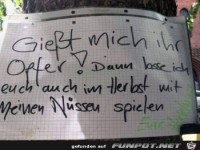 Gießt mich ihr
Opfer! Dann lasse ich
euch auch im Herbst mit
meinen Nüssen spielen
Eure
gefunden auf FUNPOT.NET